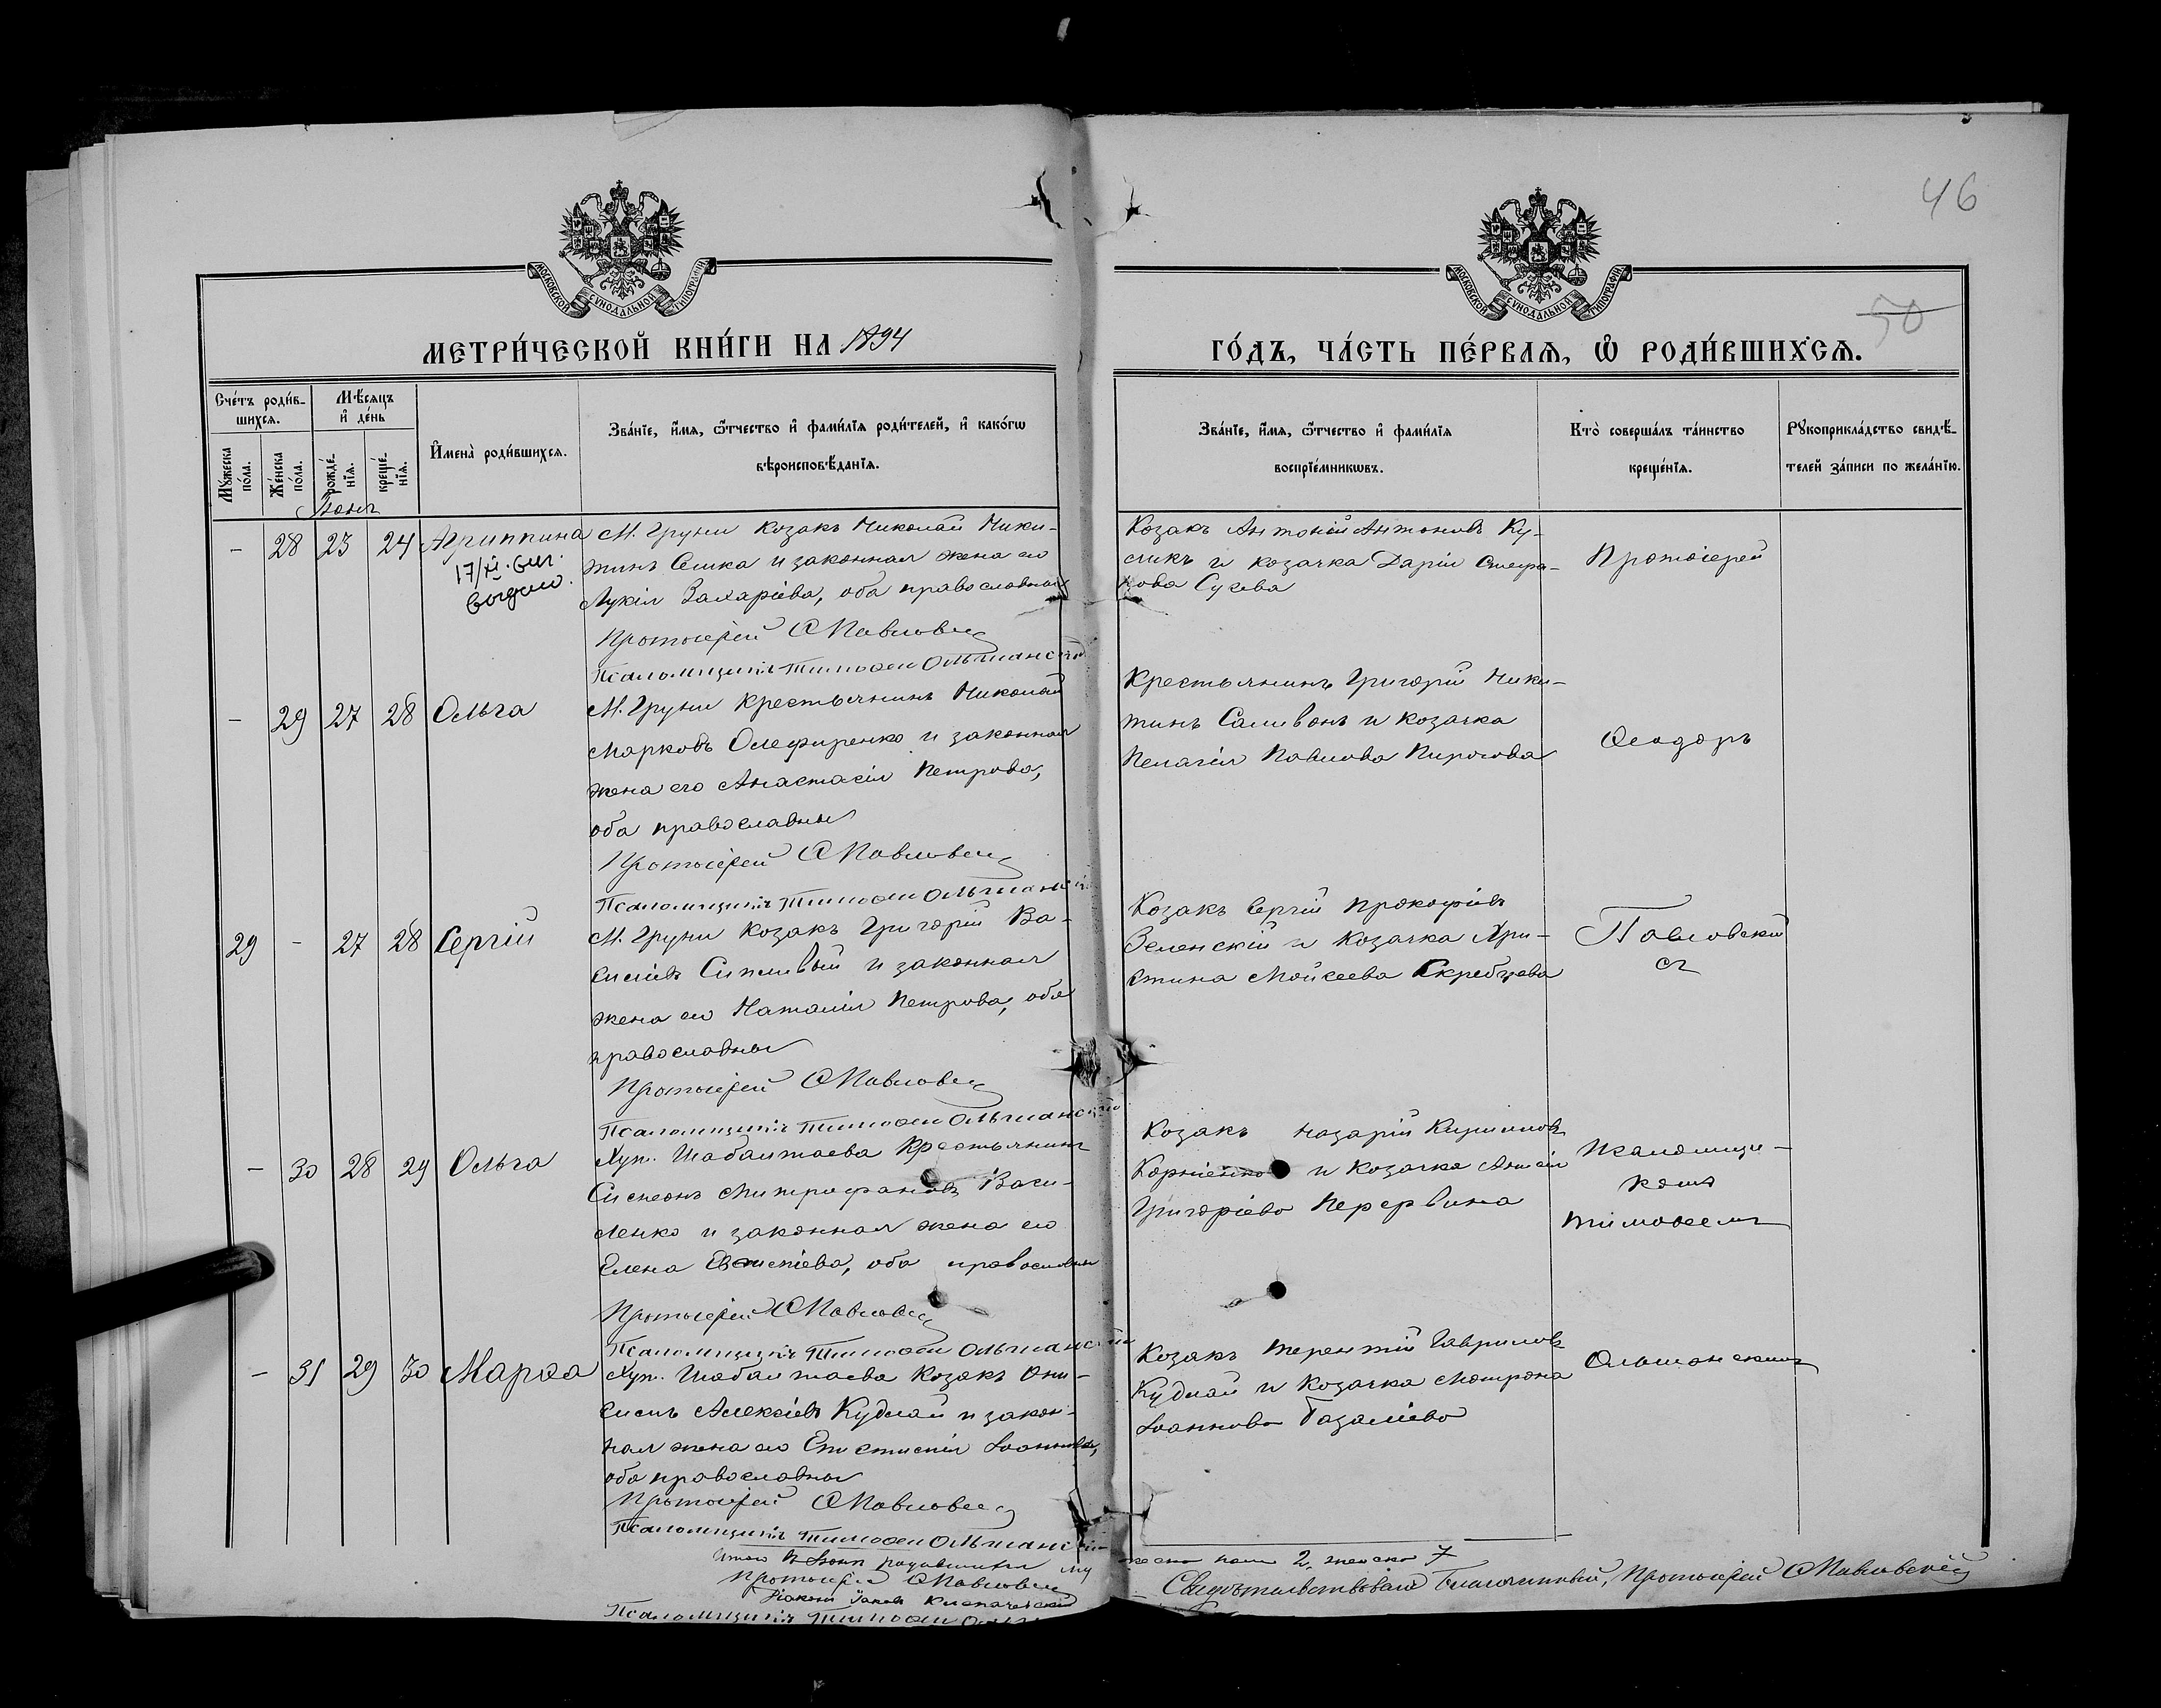 46
50
МОСКОВСКОЙ СѴНОДАЛЬНОЙ ТИПОГРАФІИ
МОСКОВСКОЙ СѴНОДАЛЬНОЙ ТИПОГРАФІИ
МЕТРИ́ЧЕСКОЙ КНИ́ГИ НА 1894
ГО́ДЪ, ЧА́СТЬ ПЕ́РВАѦ, Ѡ҆ РОДИ́ВШИХСѦ.
Сче́тъ роди́в-
шихсѧ.
Мꙋ́жеска
по́ла.
Же́нска
по́ла.
Мѣ́сѧцъ
и҆ де́нь
рожде́-
нїѧ.
креще́-
нїѧ.
И҆мена̀ роди́вшихсѧ.
Зва́нїе, и҆́мѧ, ѻ҆́тчество и҆ фами́лїѧ роди́телей, и҆ како́гѡ
вѣроисповѣ́данїѧ.
Зва́нїе, и҆́мѧ, ѻ҆́тчество и҆ фами́лїѧ
воспрїе́мникѡвъ.
Кто̀ соверша́лъ та́инство
креще́нїѧ.
Рꙋкоприкла́дство свидѣ́-
телей за́писи по жела́нїю.
Іюнь
- 28 23 24 Агриппина
17/XI
М. Груни козакъ Николай Ники-
тинъ и законная жена его
Лукія Захаріева, оба православны
Протоіерей С Павловск
Псаломщикъ Тимоѳей Ольшанскій
Козакъ Антоній Антоновъ Ку-
сликъ и козачка Дарія Стефа-
нова Сухева
Протоіерей
- 29 27 28 Ольга
М. Груни крестьянинъ Николай
Марковъ Олефиренко и законная
жена его Анастасія Петрова,
оба православны
Протоіерей С Павловск
Псаломщикъ Тимоѳей Ольшанскій
Крестьянинъ Григорій Ники-
тинъ Саливонъ и козачка
Пелагія Павлова Пирогова
Ѳеодоръ
29 - 27 28 Сергій
М. Груни козакъ Григорій Ва-
силіевъ Сипливый и законная
жена его Наталія Петрова, оба
православны
Протоіерей С Павловск
Псаломщикъ Тимоѳей Ольшанскій
Козакъ Сергій Прокофіевъ
Зеленскій и козачка Хри-
стина Моисеева Скребцева
Павловскій
съ
- 30 28 29 Ольга
Хут. Шабалтаева крестьянинъ
Симеонъ Митрофановъ Васи-
ленко и законная жена его
Елена оба православны
Протоіерей С Павловск
Псаломщикъ Тимоѳей Ольшанскій
Козакъ Назарій Кирилловъ
Корніенко и козачка
Григоріева Перервина
Псаломщи-
комъ
Тимоѳеемъ
- 31 29 30 Марѳа
Хут. Шабалтаева козакъ Они-
симъ Алексіевъ Кудлай и закон-
ная жена его Евстимія Іоаннова,
оба православны
Протоіерей С Павловск
Псаломщикъ Тимоѳей Ольшанскій
Козакъ Терентій Гавриловъ
Кудлай и козачка Матрона
Іоаннова Газаліева
Ольшанскимъ
Итого въ Іюнѣ родившихся му
жеска пола 2, женска 7
Протоіерей С Павловск
Діаконъ
Псаломщикъ Тимоѳей
Свидѣтельствовалъ Благочинный, Протоіерей С Павловскій